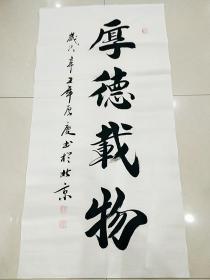 厚德載物
歲次辛丑年书於北京